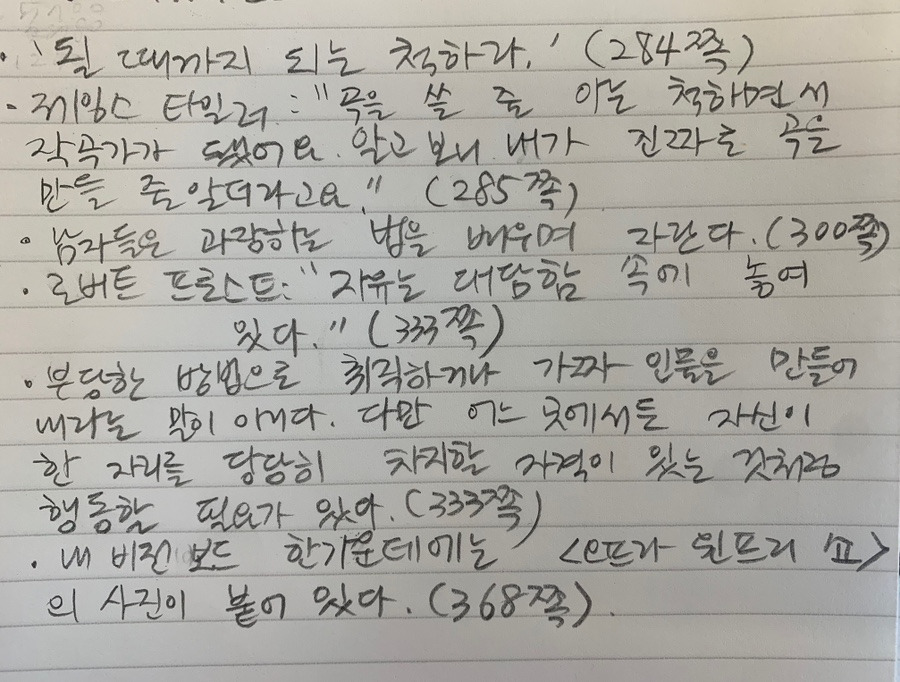 · '될 때까지 되는 척하라.' (284쪽)
· 제임스 타일러 : "곡을 쓸 줄 아는 척하면서
작곡가가 됐어요. 알고 보니 내가 진짜로 곡을
만들 줄 알더라고요." (285쪽)
· 남자들은 과장하는 법을 배우며 자란다. (300쪽)
· 로버트 프로스트: "자유는 대담함 속에 놓여
있다." (333쪽)
· 부당한 방법으로 취직하거나 가짜 인물을 만들어
내라는 말이 아니다. 다만 어느 곳에서든 자신이
한 자리를 당당히 차지할 자격이 있는 것처럼
행동할 필요가 있다. (333쪽)
· 내 비전 보드 한가운데에는 <오프라 윈프리 쇼>
의 사진이 붙어 있다. (368쪽).